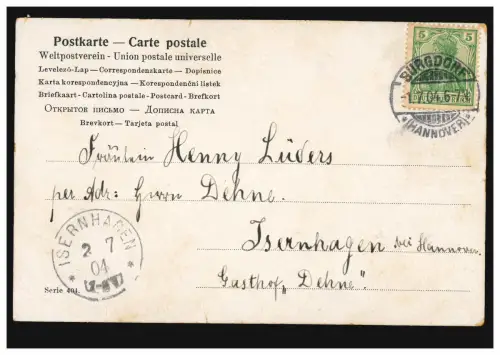 Postkarte — Carte postale
Weltpostverein - Union postale universelle
Levelező-Lap — Correspondenskarte — Dopisnice
Karta korespondencyjna — Korespondenční lístek
Briefkaart - Cartolina postale - Postcard - Brefkort
Открытое письмо — Дописна карта
Brevkort — Tarjeta postal
5 5
BURGDORF
1.7.04.6-7N.
*(HANNOVER)*
Fräulein Henny Lüders
per Adr: Herrn Dehne.
Isernhagen bei Hannover.
Gasthof „Dehne".
* ISERNHAGEN *
2 7
04
Serie 404.